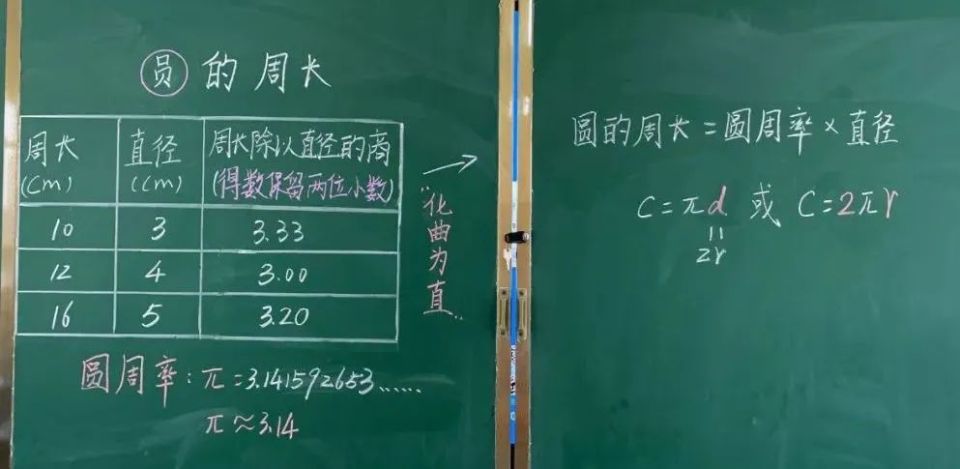 圆的周长
周长 直径 周长除以直径的商
(Cm) (Cm) (得数保留两位小数)
10 3 3.33
12 4 3.00
16 5 3.20
圆周率:π=3.141592653……
π≈3.14
"化曲为直"
圆的周长=圆周率×直径
C=πd 或 C=2πr
=
2r